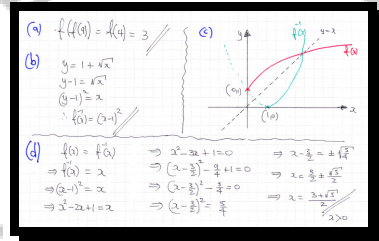 (a) f(f(9)) = f(4) = 3
(b)
y = 1 + √x
y-1 = √x
(y-1)² = x
∴ f⁻¹(x) = (x-1)²
(c)
y
f⁻¹(x)
y=x
f(x)
(0,1)
(1,0)
x
(d) f(x) = f⁻¹(x)
⇒ f⁻¹(x) = x
⇒ (x-1)² = x
⇒ x²-2x+1 = x
⇒ x²-3x+1=0
⇒ (x-3/2)² - 9/4 + 1 = 0
⇒ (x-3/2)² - 5/4 = 0
⇒ (x-3/2)² = 5/4
⇒ x - 3/2 = ±√5/4
⇒ x = 3/2 ± √5/2
⇒ x = 3+√5/2
x>0